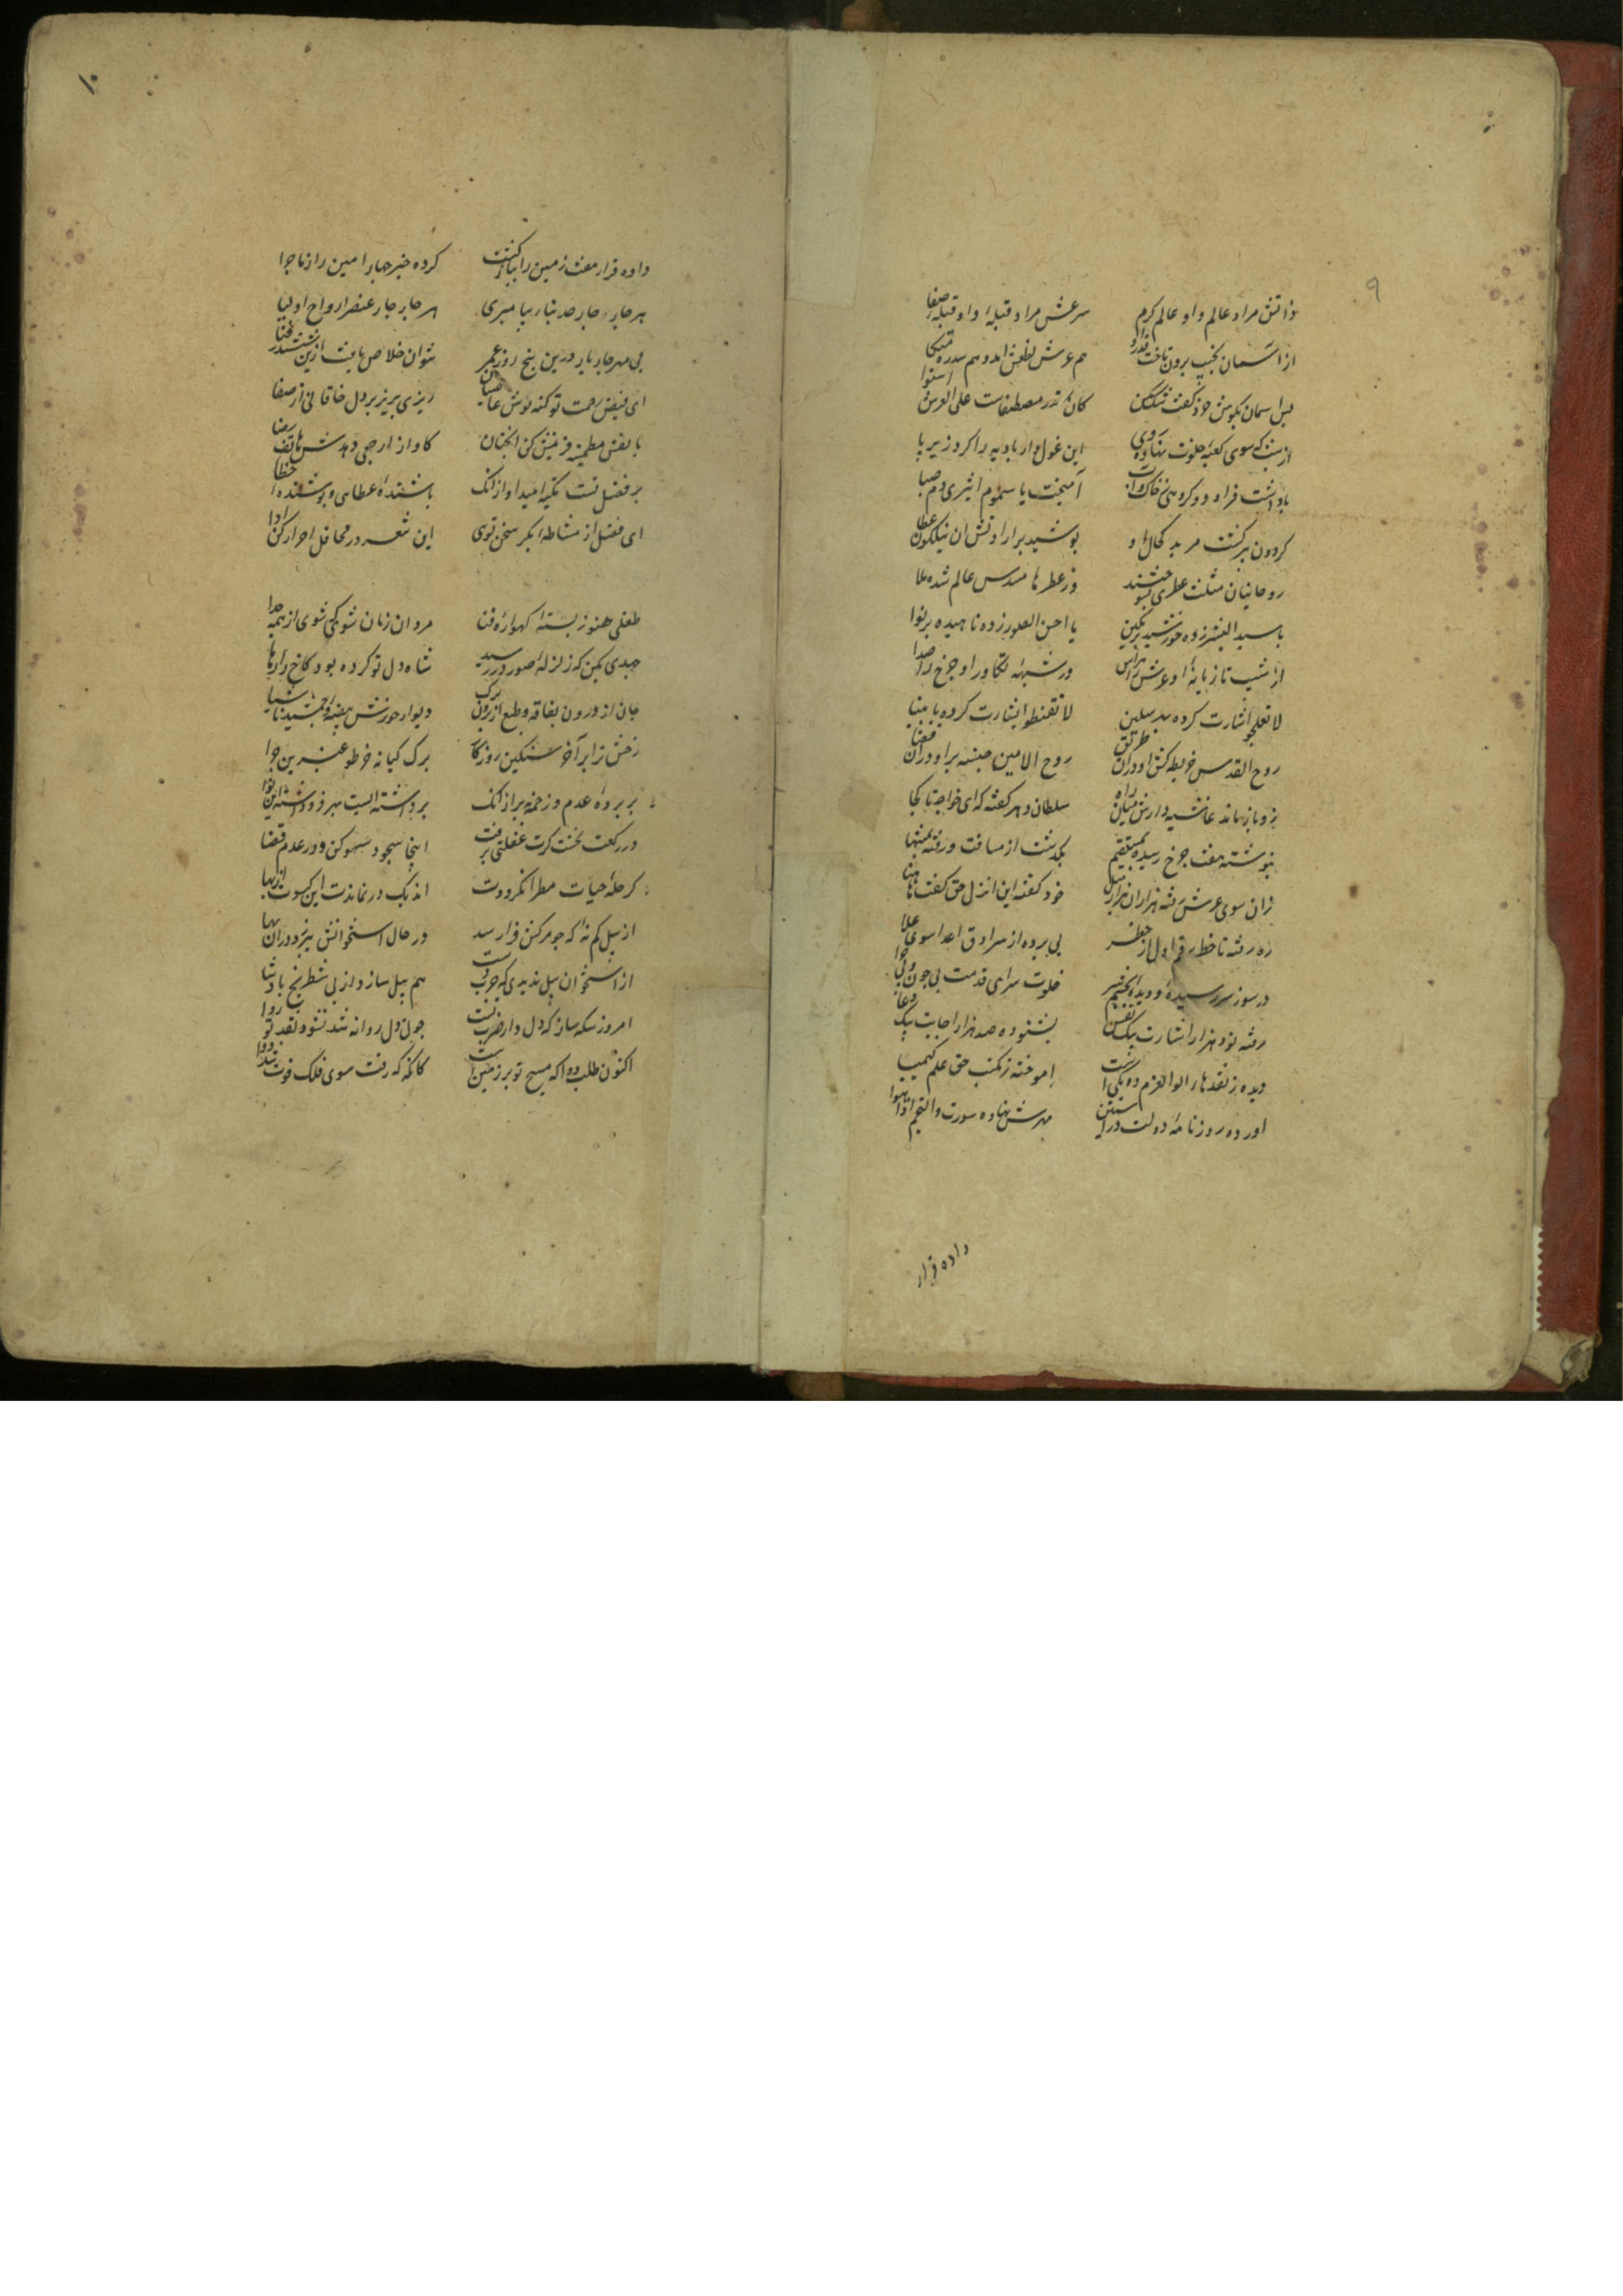 ۹
ذاتش مراد عالم و او عالم کرم شرعش مراد قبله او او قبله صفا
از آسمان بخست برون تاخت قدر او هم عرش نطعش آمد و هم سدره متکا
پس آسمان بکوش خرد گفت شک مکن کان قدر مصطفاست علی العرش استوا
آن شب که سوی کعبه خلت نهاد روی این غول دار بادیه را کرد زیر پا
بودند فرا دو کروهی ز خاک و آب آمیخت با سموم اثیری دم صبا
کردون پیر کشت مرید کمال او پوشید بر ارادتش این نیلکون عطا
روحانیان مثلث عطری بسوختند وز عطرها مسدس عالم شده ملا
یا سید البشر زده خورشید بر نکین یا احسن الصور زده ناهید بر نوا
از شیب تازیانه او عرش را هراس وز شیهه تکاور او چرخ را صدا
لا تعجلوا اشارت کرده بمرسلین لا تقنطوا بشارت کرده باتقیا
روح القدس خریطه کش او در آن طریق روح الامین جنیبه بر او در آن فضا
زو باز مانده غاشیه دارش میان راه سلطان دهر گفته که ای خواجه تا کجا
بنوشته هفت چرخ و رسیده بمستقیم بگذشت از مسافت و رفته بمنتها
زان سوی عرش رفته هزاران هزار میل خود گفته این انزل حق گفت هاهنا
ره رفته تا خط رقم اول از خطر پی برده از سرادق اعدا سوی علا
در سور سر رسیده و دیده بچشم سر خلوت سرای قدمت بی چون و بی چرا
رفته نود هزار اشارت بیک نفس بشنوده صد هزار اجابت بیک دعا
دیده ز نقدهای الوالعزم ده یکی آموخته ز مکتب حق علم کیمیا
آورده روزنامه دولت در آستین مهرش نهاده سورت والنجم اذا هوا
داده قرار
۱۰
داده قرار هفت زمین را ببازگشت کرده خبر چهار امین را ز ماجرا
هر چار چار حد بنای پیامبری هر چار چار عنصر ارواح اولیا
بی مهر چار یار درین پنج روز عمر نتوان خلاص یافت ازین ششدر فنا
ای فیض رحمت تو کنه شوی عاصیان ریزی بریز بر دل خاقانی از صفا
با نفس مطمئنه قرینش کن آنچنان کاواز ارجعی دهدش هاتف رضا
بر فضل تست تکیه امید او از آنک پاشنده عطایی و پوشنده خطا
ای افضل از مشاطه بکر سخن تویی این شعر در محافل احرار کن ادا
طفلی هنوز بسته کهواره فنا مرد آن زمان شوی که شوی از همه جدا
جهدی بکن که زلزله صور در رسد شاه دل تو کرده بود کاخ را رها
جان از درون بفاقه و طبع از برون ببرک دیوار خورش بهیضه و جمشید ناشتا
رخش ترا بر آخر سنکین روزکار برک کیا نه و خر تو عنبرین چرا
بر پرده عدم زن زخمه بر از آنک برداشته است بهر فرو داشت این نوا
در رکعت نخست کرت غفلتی برفت اینجا سجود سهو کن و در عدم قضا
کر حله حیات مطرا نکرددت اندیک درنماندت این کسوت از بها
از پیل کم نه که چو مرکش فرا رسد در حال استخوانش بیرزد در آن بها
از استخوان پیل ندیدی که چرب دست هم پیل سازد از پی شطرنج پادشا
امروز سکه ساز که دل دار ضرب تست چون دل روانه شد نشود نقد تو روا
اکنون طلب دوا که مسیح تو بر زمین است کانکه که رفت سوی فلک فوت شد دوا